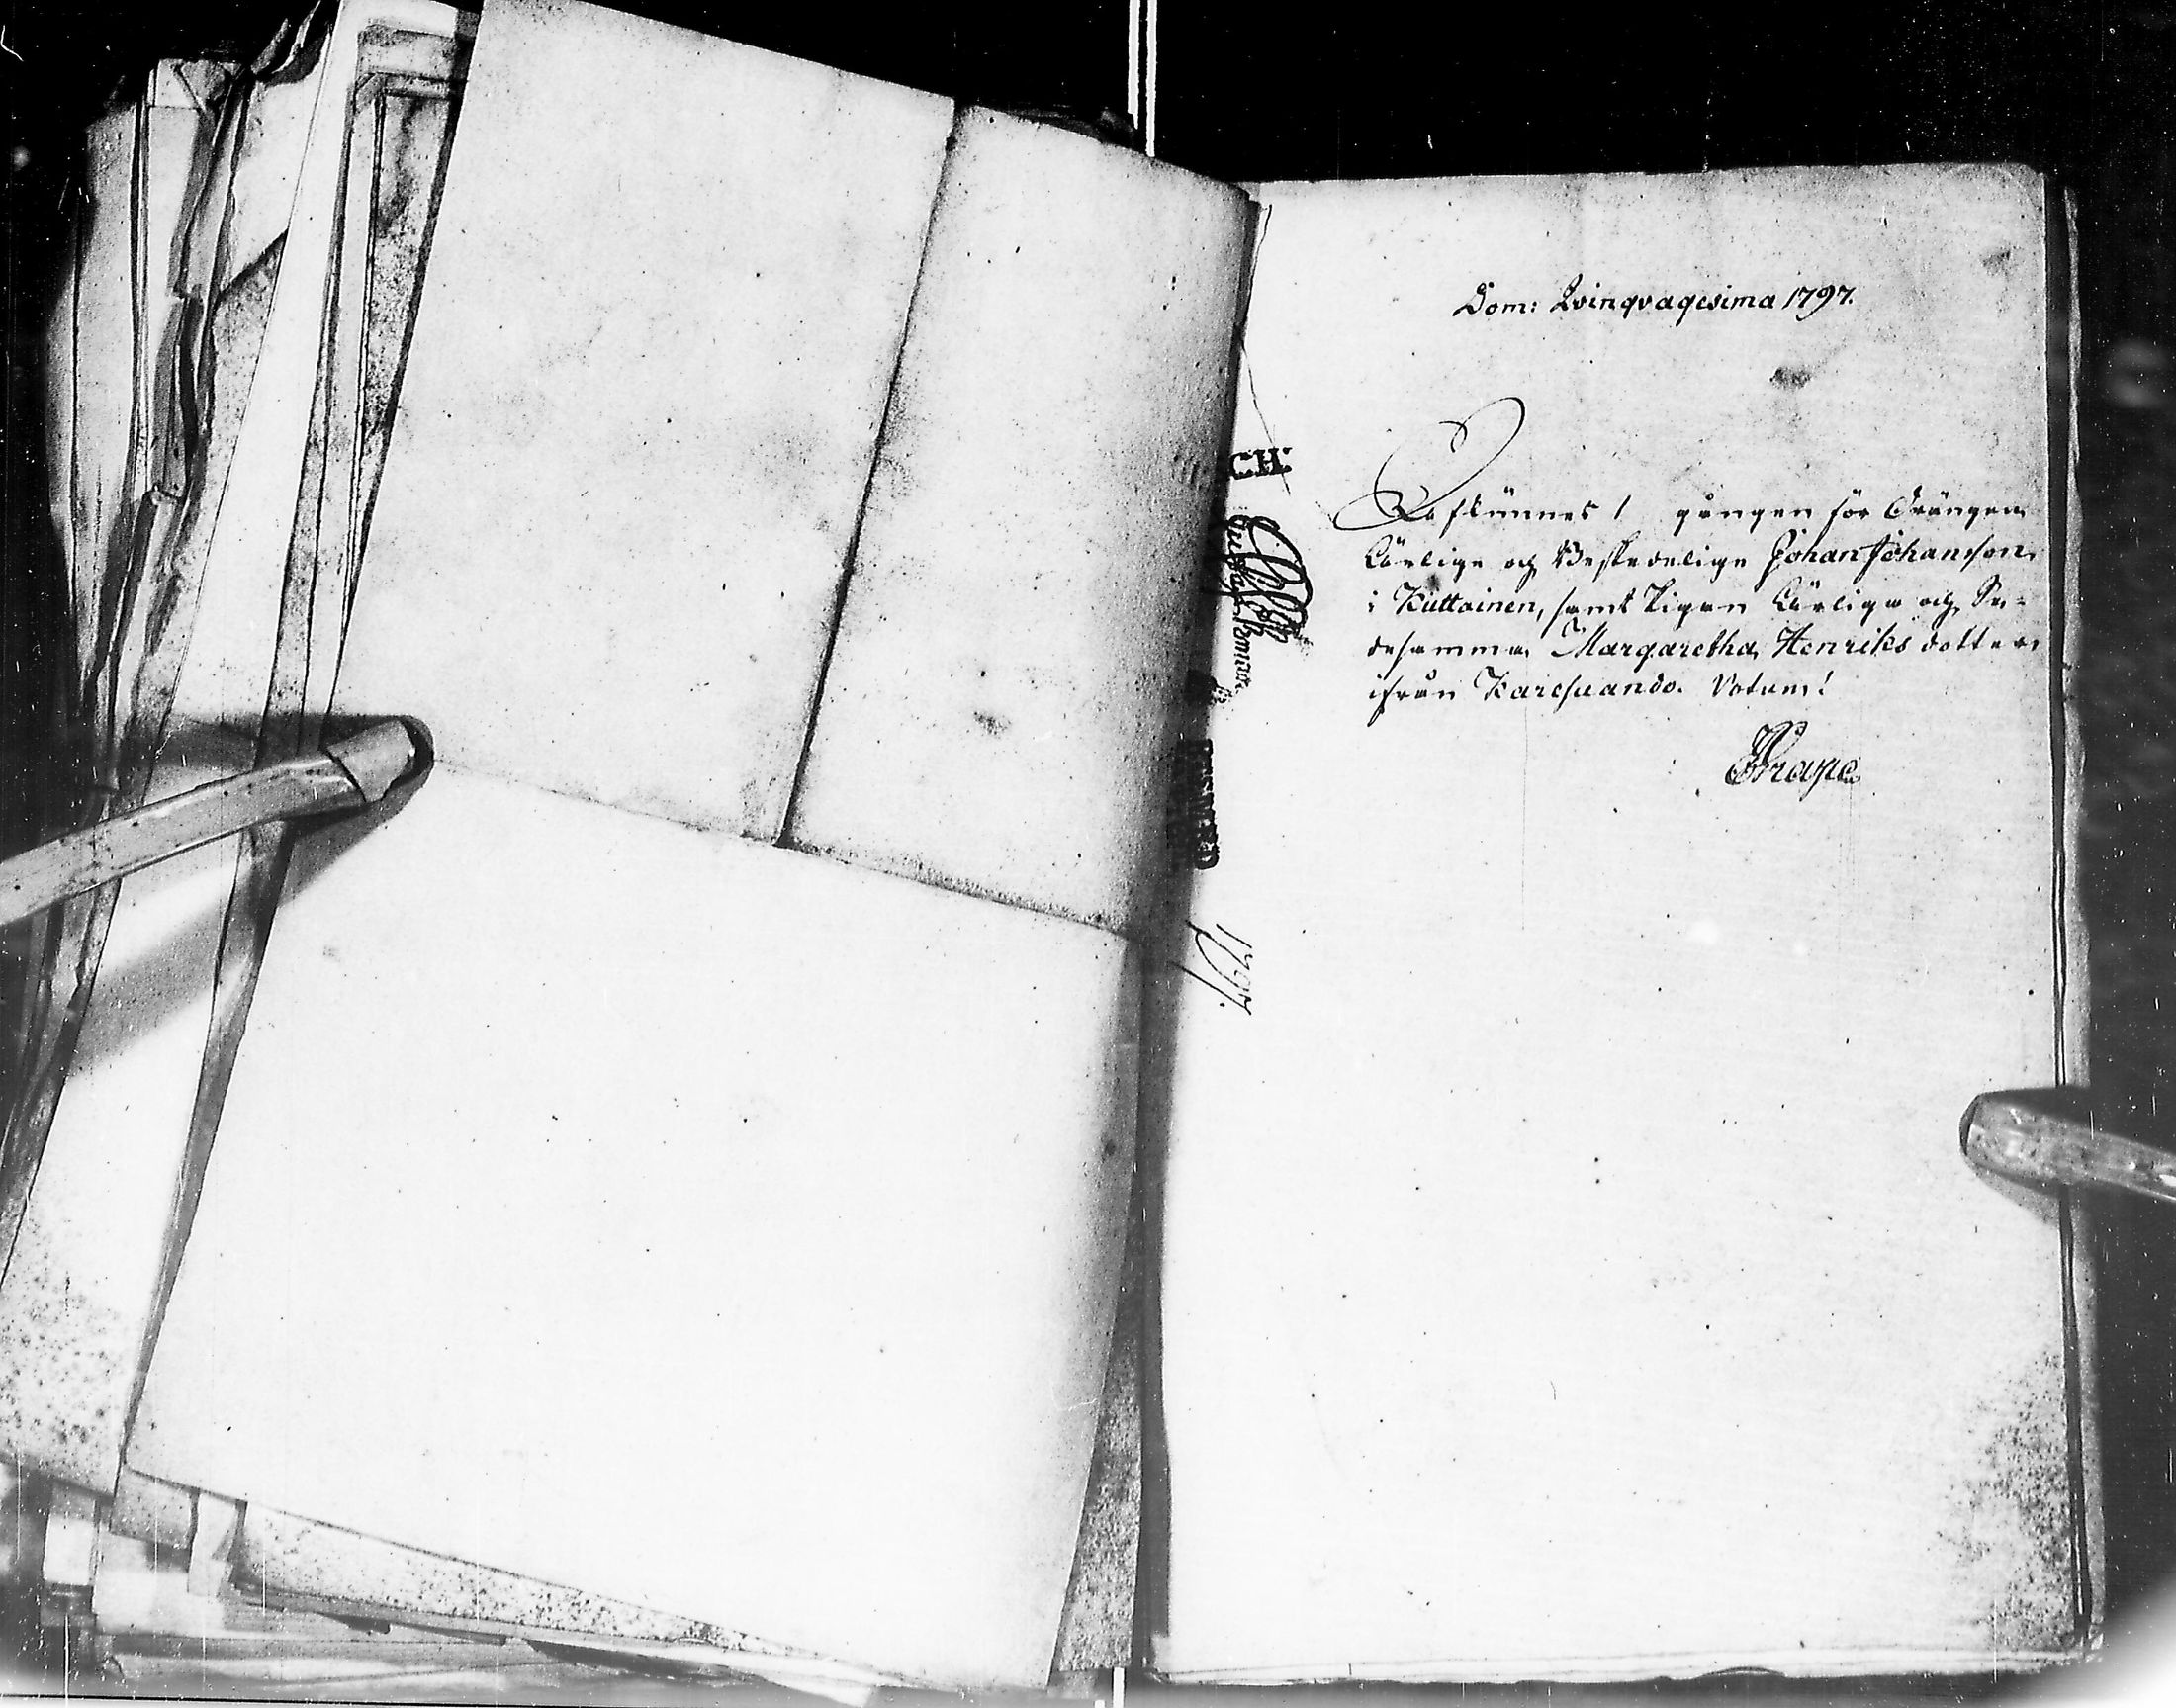 Dom: Qvinqvagesima 1797.
Afkunnes 1 gången för Drängen
Ärlige och Beskedelige Johan Johansson
i Kuttainen, samt Pigan Ärliga och Se-
desamma Margaretha Henriks dotter
ifrån Karesuando. Votum!
CH:
1797.